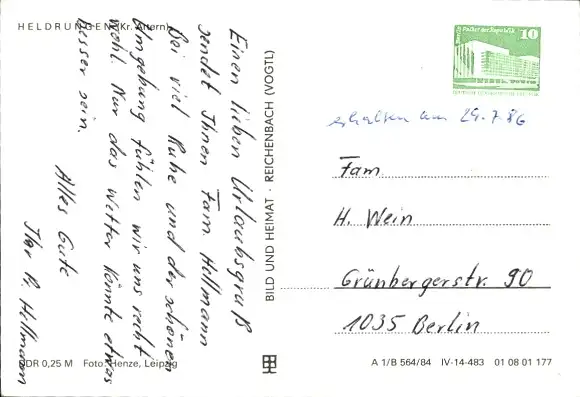 HELDRUNGEN (Kr. Artern)
Einen lieben Urlaubsgruß
sendet Ihnen Fam. Hellmann
Bei viel Ruhe und der schönen
Umgebung fühlen wir uns recht
wohl. Nur das Wetter könnte etwas
besser sein.
Alles Gute
Ihr R. Hellmann
DDR 0,25 M Foto: Henze, Leipzig
BILD UND HEIMAT · REICHENBACH (VOGTL)
Palast der Republik
10
erhalten am 29.7.86
Fam
H. Wein
Grünbergerstr. 90
1035 Berlin
A 1/B 564/84 IV-14-483 01 08 01 177